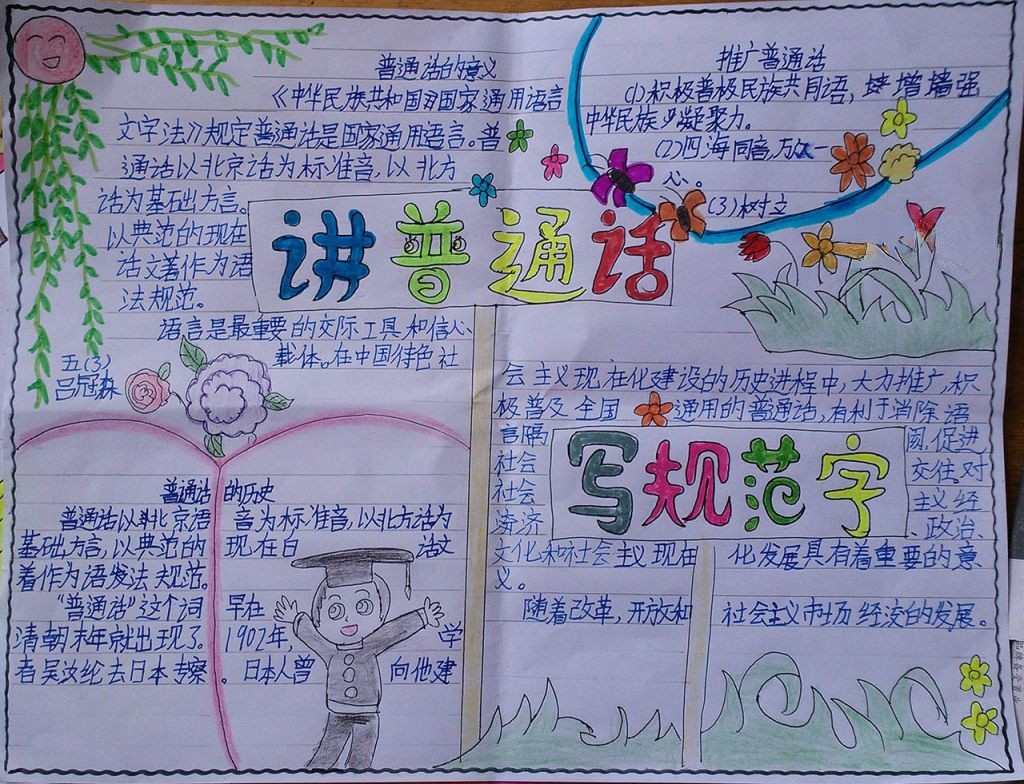 普通话的意义
《中华民族共和国国家通用语言
文字法》规定普通话是国家通用语言。普
通话以北京话为标准音，以北方
话为基础方言。
以典范的现在
话文著作为语
法规范。
语言是最重要的交际工具和信人、
载体。在中国特色社
推广普通话
(1)积极普极民族共同语，增墙强
中华民族凝聚力。
(2)四海同音，万众一
心。
(3)树立
讲普通话
五(3)
吕冠森
会主义现在化建设的历史进程中，大力推广，积
极普及全国通用的普通话，有利于消除语
言隔阂，促进
社会交往、对
社会主义经
济济、政治、
写规范字
文化和社会主义现在化发展具有着重要的意
义。
随着改革，开放和社会主义市场经济的发展。
普通话的历史
普通话以北京语音为标准音，以北方话为
基础方言，以典范的现在白话文
著作为语发法规范。
“普通话”这个词早在
清朝末年就出现了。1902年，学
者吴汝纶去日本专察。日本人曾向他建